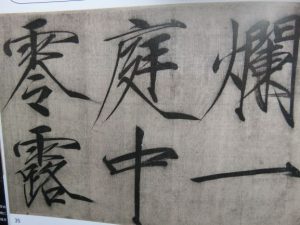 爛一
庭中
零露
35